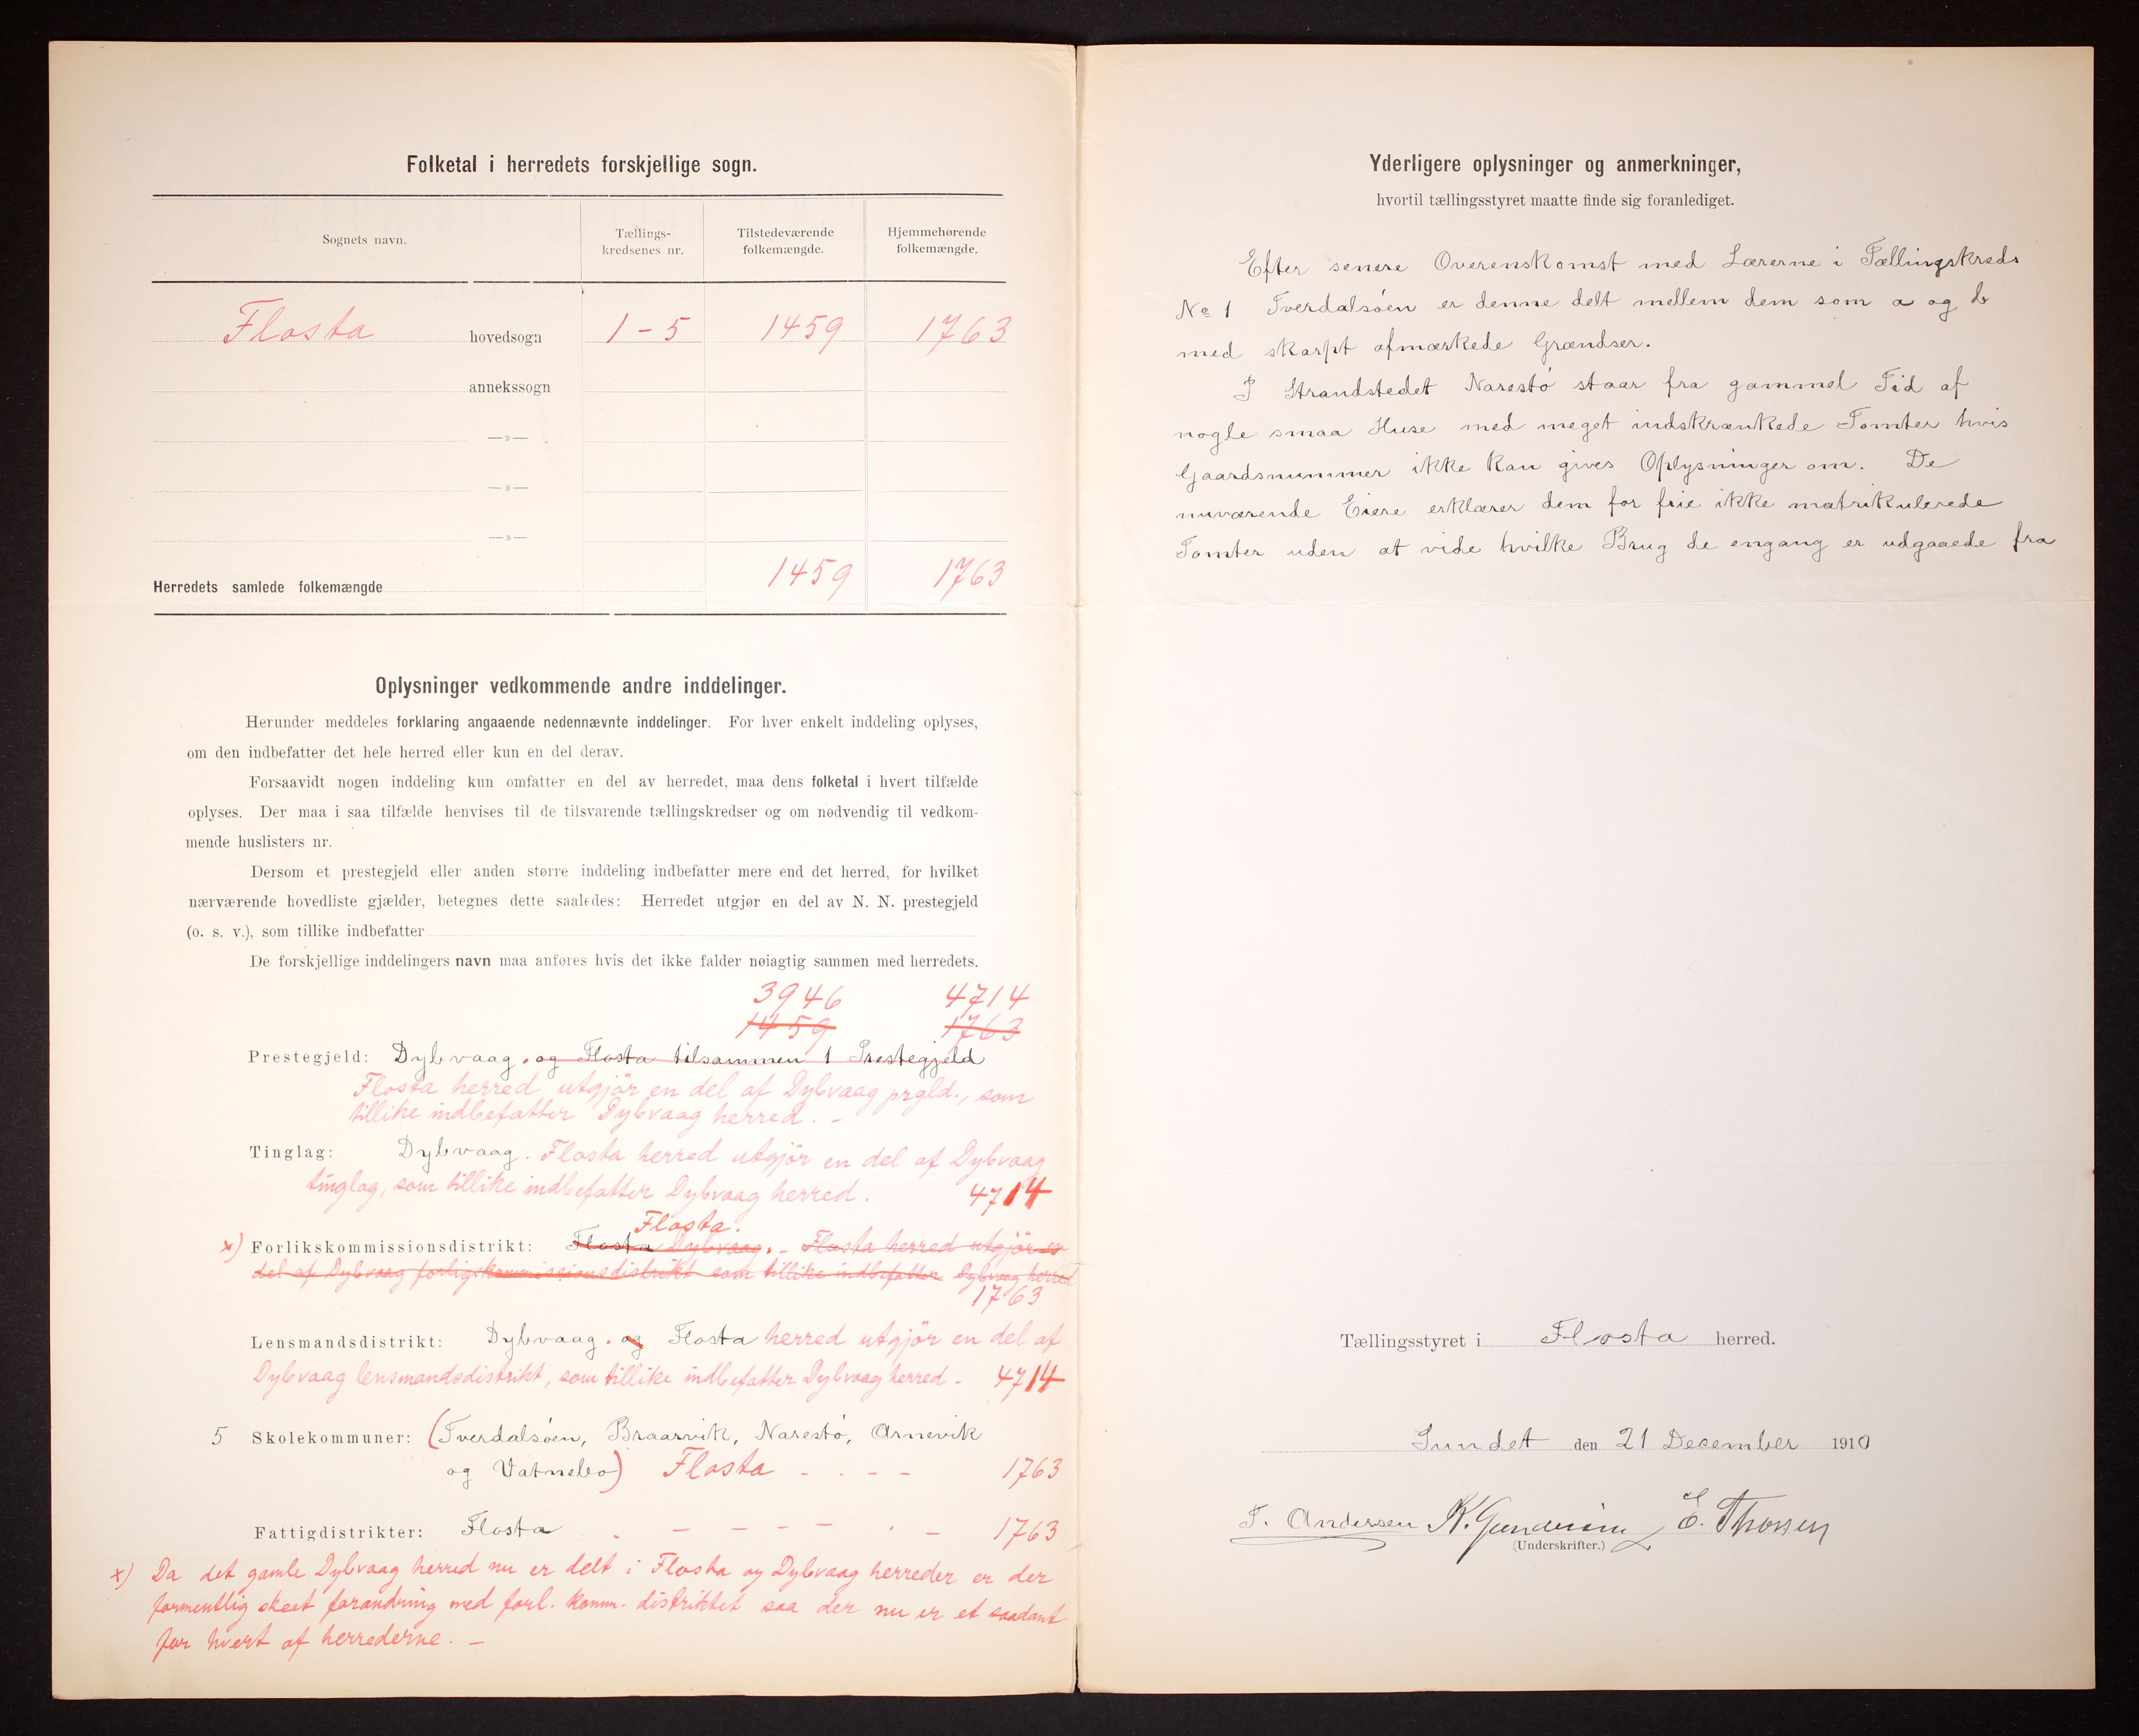 Folketal i herredets forskjellige sogn.
Sognets navn.
Tællings-
kredsenes nr.
Tilstedeværende
folkemængde.
Hjemmehørende
folkemængde.
Flosta hovedsogn 1-5 1459 1763
annekssogn
—»—
—»—
—»—
Herredets samlede folkemængde 1459 1763
Oplysninger vedkommende andre inddelinger.
Herunder meddeles forklaring angaaende nedennævnte inddelinger. For hver enkelt inddeling oplyses,
om den indbefatter det hele herred eller kun en del derav.
Forsaavidt nogen inddeling kun omfatter en del av herredet, maa dens folketal i hvert tilfælde
oplyses. Der maa i saa tilfælde henvises til de tilsvarende tællingskredser og om nødvendig til vedkom-
mende huslisters nr.
Dersom et prestegjeld eller anden større inddeling indbefatter mere end det herred, for hvilket
nærværende hovedliste gjælder, betegnes dette saaledes: Herredet utgjør en del av N. N. prestegjeld
(o. s. v.), som tillike indbefatter
De forskjellige inddelingers navn maa anføres hvis det ikke falder nøiagtig sammen med herredets.
3946 4714
1459 1763
Prestegjeld: Dybvaag. og Flosta tilsammen 1 Prestegjeld
Flosta herred utgjör en del af Dybvaag prgld., som
tillike indbefatter Dybvaag herred. -
Tinglag: Dybvaag. Flosta herred utgjör en del af Dybvaag
tinglag, som tillike indbefatter Dybvaag herred. 4714
Flosta.
x) Forlikskommissionsdistrikt: Flosta Dybvaag. - Flosta herred utgjör en
del af Dybvaag forligskommissionsdistrikt som tillike indbefatter Dybvaag herred
1763
Lensmandsdistrikt: Dybvaag. og Flosta herred utgjör en del af
Dybvaag lensmandsdistrikt, som tillike indbefatter Dybvaag herred - 4714
5 Skolekommuner: (Tverdalsöen, Braarvik, Narestö, Arnevik
og Vatnebo) Flosta - - - - 1763
Fattigdistrikter: Flosta - - - - - - 1763
x) Da det gamle Dybvaag herred nu er delt i Flosta og Dybvaag herreder er der
formentlig skeet forandring med forl. komm. distriktet saa der nu er et saadant
for hvert af herrederne. -
Yderligere oplysninger og anmerkninger,
hvortil tællingsstyret maatte finde sig foranlediget.
Efter senere Overenskomst med Lærerne i Tællingskreds
No 1 Tverdalsöen er denne delt mellem dem som a og b
med skarpt afmærkede Grændser.
I Strandstedet Narestö staar fra gammel Tid af
nogle smaa Huse med meget indskrænkede Tomter hvis
Gaardsnummer ikke kan gives Oplysninger om. De
nuværende Eiere erklærer dem for frie ikke matrikulerede
Tomter uden at vide hvilke Brug de engang er udgaaede fra
Tællingsstyret i Flosta herred.
Sundet den 21 December 1910
T. Andersen K. Gundersen E. Thorsen
(Underskrifter.)